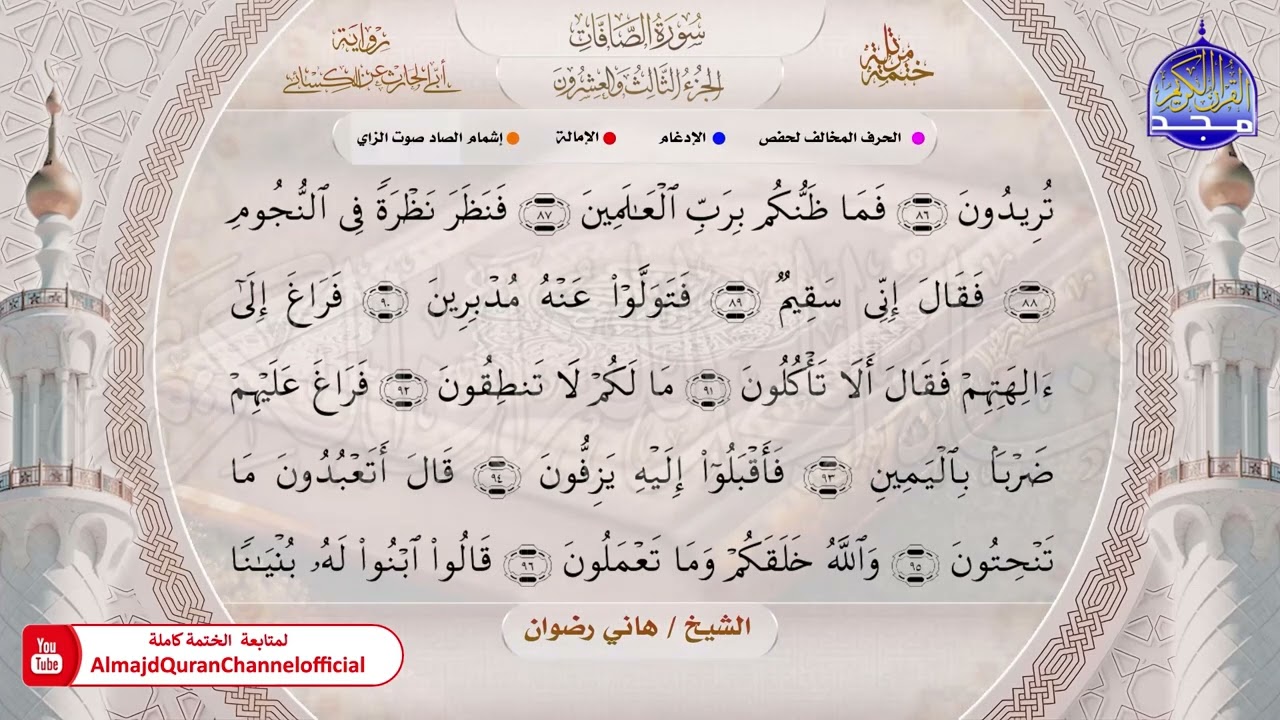 سُورَةُ الصَّافَّاتِ
الجُزْءُ الثَّالِثُ وَالعِشْرُونَ
ختمة مرتلة
رواية
أبي الحارث عن الكسائي
القرآن الكريم
مجد
الحرف المخالف لحفص الإدغام الإمالة إشمام الصاد صوت الزاي
تُرِيدُونَ ٨٦ فَمَا ظَنُّكُم بِرَبِّ ٱلْعَـٰلَمِينَ ٨٧ فَنَظَرَ نَظْرَةً فِى ٱلنُّجُومِ
٨٨ فَقَالَ إِنِّى سَقِيمٌ ٨٩ فَتَوَلَّوْا۟ عَنْهُ مُدْبِرِينَ ٩٠ فَرَاغَ إِلَىٰٓ
ءَالِهَتِهِمْ فَقَالَ أَلَا تَأْكُلُونَ ٩١ مَا لَكُمْ لَا تَنطِقُونَ ٩٢ فَرَاغَ عَلَيْهِمْ
ضَرْبًۢا بِٱلْيَمِينِ ٩٣ فَأَقْبَلُوٓا۟ إِلَيْهِ يَزِفُّونَ ٩٤ قَالَ أَتَعْبُدُونَ مَا
تَنْحِتُونَ ٩٥ وَٱللَّهُ خَلَقَكُمْ وَمَا تَعْمَلُونَ ٩٦ قَالُوا۟ ٱبْنُوا۟ لَهُۥ بُنْيَـٰنًا
الشيخ / هاني رضوان
لمتابعة الختمة كاملة
You Tube
AlmajdQuranChannelofficial